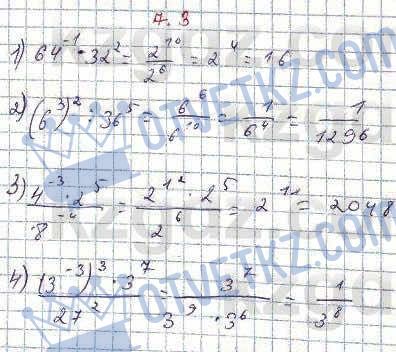 7.3
1) 64⁻¹ · 32² = 2¹⁰/2⁶ = 2⁴ = 16
2) (6³)² : 36⁵ = 6⁶/6¹⁰ = 1/6⁴ = 1/1296
3) 4⁻³ · 2⁵ / 8⁻⁴ = 2¹² · 2⁵ / 2⁶ = 2¹¹ = 2048
4) (3⁻³)³ · 3⁷ / 27² = 3⁷ / 3⁹ · 3⁶ = 1/3⁸
OTVETKZ.COM